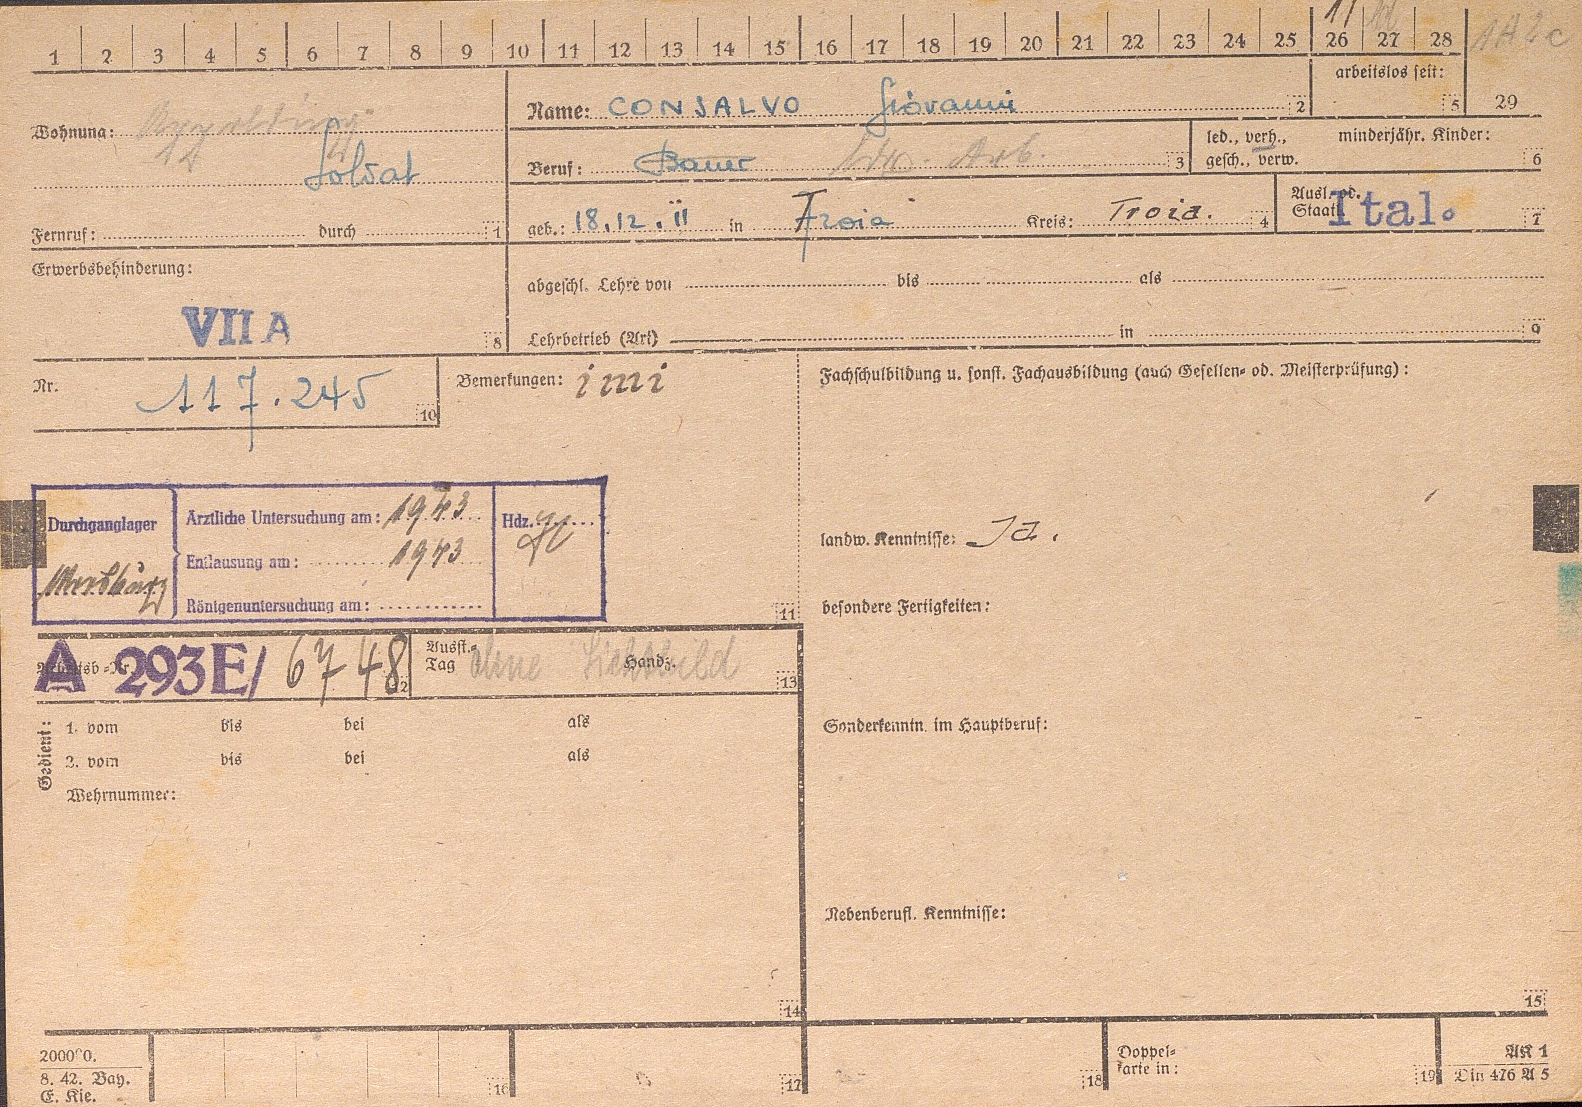 1 2 3 4 5 6 7 8 9 10 11 12 13 14 15 16 17 18 19 20 21 22 23 24 25 26 27 28
11
1A2c
arbeitslos seit:
5
29
Wohnung:
Soldat
Fernruf: durch 1
Name: CONSALVO Giovanni 2
Beruf: Bauer Ldw. Arb. 3
led., verh., gesch., verw.
minderjähr. Kinder: 6
geb.: 18.12.11 in Troia Kreis: Troia. 4
Ausl. od. Staatl. Ital. 7
Erwerbsbehinderung:
VII A
8
abgeschl. Lehre von bis als
Lehrbetrieb (Art) in 9
Nr. 117.245 10
Bemerkungen: imi
Fachschulbildung u. sonst. Fachausbildung (auch Gesellen- od. Meisterprüfung):
Durchganglager
Ärztliche Untersuchung am: 1943
Entlausung am: 1943
Röntgenuntersuchung am:
Hdz.
11
landw. Kenntnisse: Ja.
besondere Fertigkeiten:
Arbeitsb.-Nr. A 293E/ 6748 12
Ausst.-Tag Handz. 13
ohne Lichtbild
Gedient:
1. vom bis bei als
2. vom bis bei als
Wehrnummer:
Sonderkenntn. im Hauptberuf:
Nebenberufl. Kenntnisse:
14
15
200000.
8. 42. Bay.
E. Kie.
16
17
18
Doppel-
karte in:
19
AK 1
Din 476 A 5